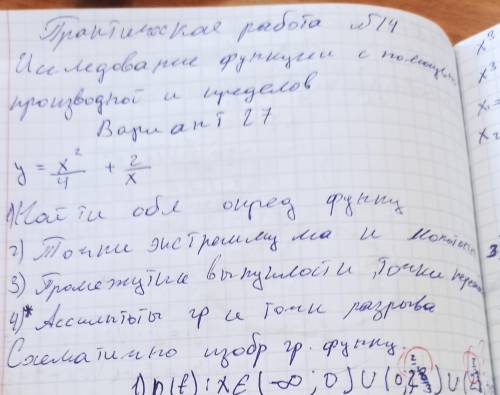 Практическая работа №14
Исследование функции с помощью
производной и пределов
Вариант 27
y = x²/4 + 2/x
1) Найти обл опред функц
2) Точки экстремума и
3) Промежутки выпуклости, точки
4)* Ассимптоты гр и точк разрыва
Схематично изобр гр. функц.
1) D(f): x∈(-∞; 0)∪(0;
x²
x³